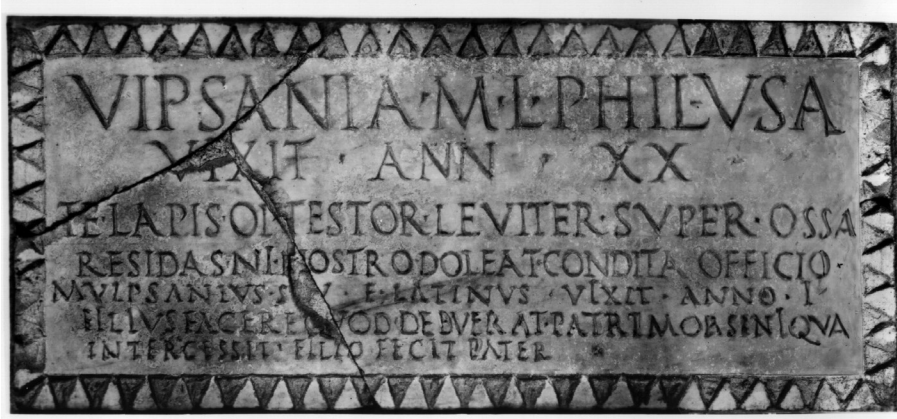 VIPSANIA·M·L·PHILVSA
VIXIT · ANN · XX
TE·LAPIS·OBTESTOR·LEVITER·SVPER·OSSA
RESIDAS·NI·NOSTRO DOLEAT·CONDITA OFFICIO·
M VIPSANIVS F·LATINVS VIXIT · ANNO · I
FILIVS FACERE QVOD·DEBVERAT·PATRI MORS INIQVA
INTERCESSIT· FILIO FECIT PATER